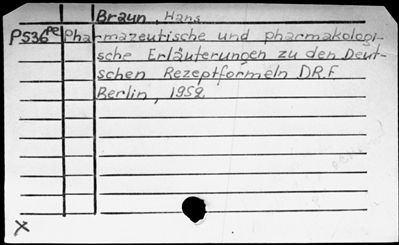 Braun, Hans
P536pe Pharmazeutische und pharmakologi-
sche Erläuterungen zu den Deut-
schen Rezeptformeln DRF
Berlin, 1952
X